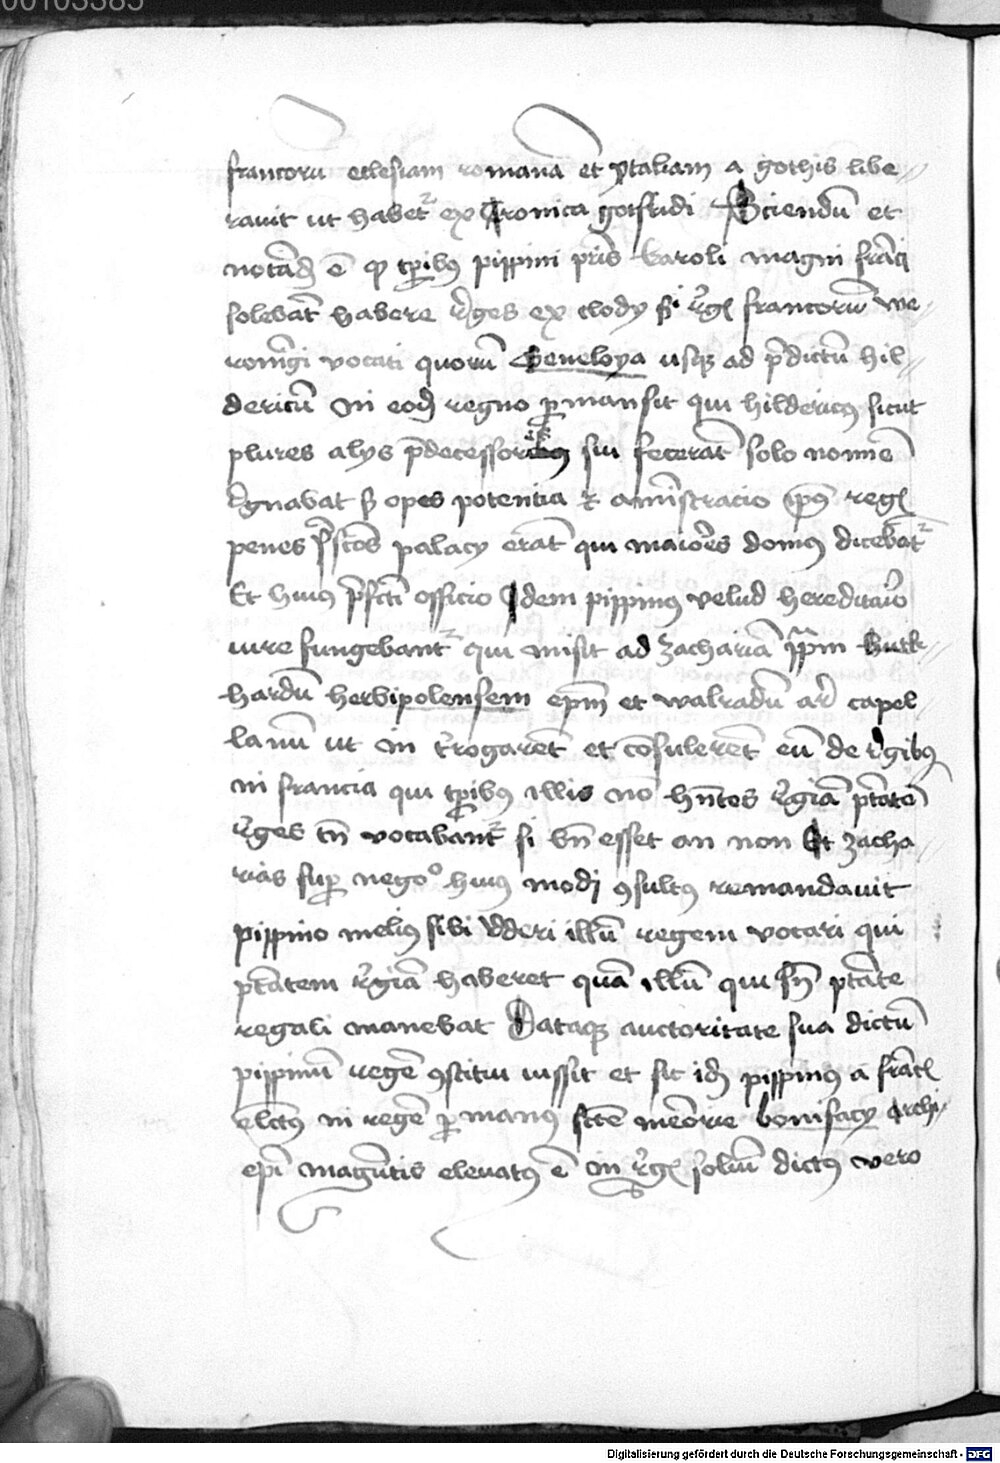 00103385
francorū ecclesiam romanā et ytaliam a gothis libe
ravit ut habet᷑ ex Cronica gotfridi Sciendū et
notād ē ꝙ tꝑibꝰ pippini pr̄is karoli magni frāci
solebāt habere r̄ges ex clody regꝭ francorū me
rovīgi vocati quorū Geneloya usqꝫ ad p̄dictū hil
dericū in eod regno ꝑmansit qui hildericꝰ sicut
plures alys p̄decessores sui fecerāt solo nomīe
r̄gnabat sꝫ opes potentia et
penes palacy erāt qui maiores domꝰ dicebāt᷑
Et huiꝰ officio Idem pippinꝰ velud hereditario
iure fungebant᷑ qui misit ad zachariā burk
hardū herbipolensem ep̄m et walradū capel
lanū ut in t̄rogarēt et cōsulerēt eū de r̄gibꝰ
in francia qui tꝑibꝰ illis nō hn̄tes r̄giā ptātē
r̄ges tn̄ vocabant᷑ si bn̄ esset an non Et zacha
rias suꝑ negoº huiꝰ modi ꝯsultꝰ remandavit
pippino meliꝰ sibi videri illū regem vocari qui
ptātem r̄giā haberet quā illū qui sn̄ ptāte
regali manebat Dataqꝫ auctoritate sua dictū
pippinū regē ꝯstitui iussit et sic idē pippinꝰ a frācꝭ
elctꝰ in regē ꝑ manꝰ scē memorie bonifacy archi
ep̄i magūtīs elevatꝰ ē in regꝭ soliū dictꝰ vero
Digitalisierung gefördert durch die Deutsche Forschungsgemeinschaft - DFG